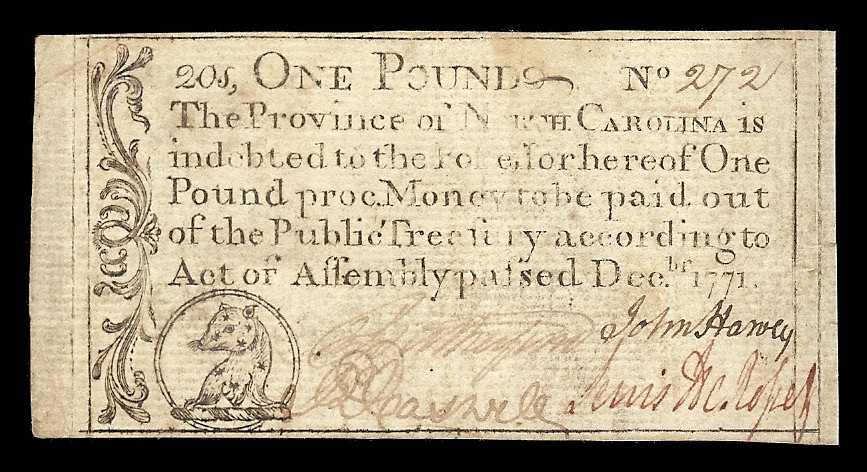 20s, ONE POUND No 272
The Province of NORTH CAROLINA is
indebted to the Poſſeſſor hereof One
Pound proc. Money to be paid out
of the Public Treaſury according to
Act of Aſſembly paſsed Dec.br 1771.
John Harvey
Lewis De Roſset